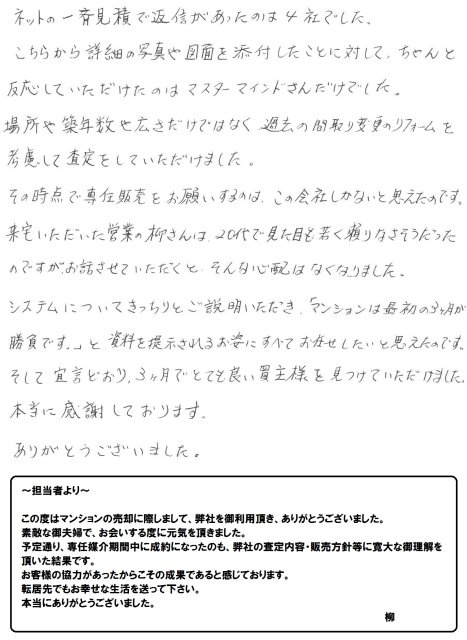 ネットの一斉見積で返信があったのは4社でした。
こちらから詳細の写真や図面を添付したことに対して、ちゃんと
反応していただけたのはマスターマインドさんだけでした。
場所や築年数や広さだけではなく、過去の間取り変更のリフォームを
考慮して査定をしていただけました。
その時点で専任販売をお願いするのは、この会社しかないと思えたのです。
来宅いただいた営業の柳さんは、20代で見た目も若く頼りなさそうだった
のですがお話させていただくと、そんな心配はなくなりました。
システムについてきっちりとご説明いただき、「マンションは最初の3ヶ月が
勝負です。」と資料を提示されるお姿にすべてお任せしたいと思えたのです。
そして宣言どおり、3ヶ月でとても良い買主様を見つけていただけました。
本当に感謝しております。
ありがとうございました。
～担当者より～
この度はマンションの売却に際しまして、弊社を御利用頂き、ありがとうございました。
素敵な御夫婦で、お会いする度に元気を頂きました。
予定通り、専任媒介期間中に成約になったのも、弊社の査定内容・販売方針等に寛大な御理解を
頂いた結果です。
お客様の協力があったからこその成果であると感じております。
転居先でもお幸せな生活を送って下さい。
本当にありがとうございました。
柳